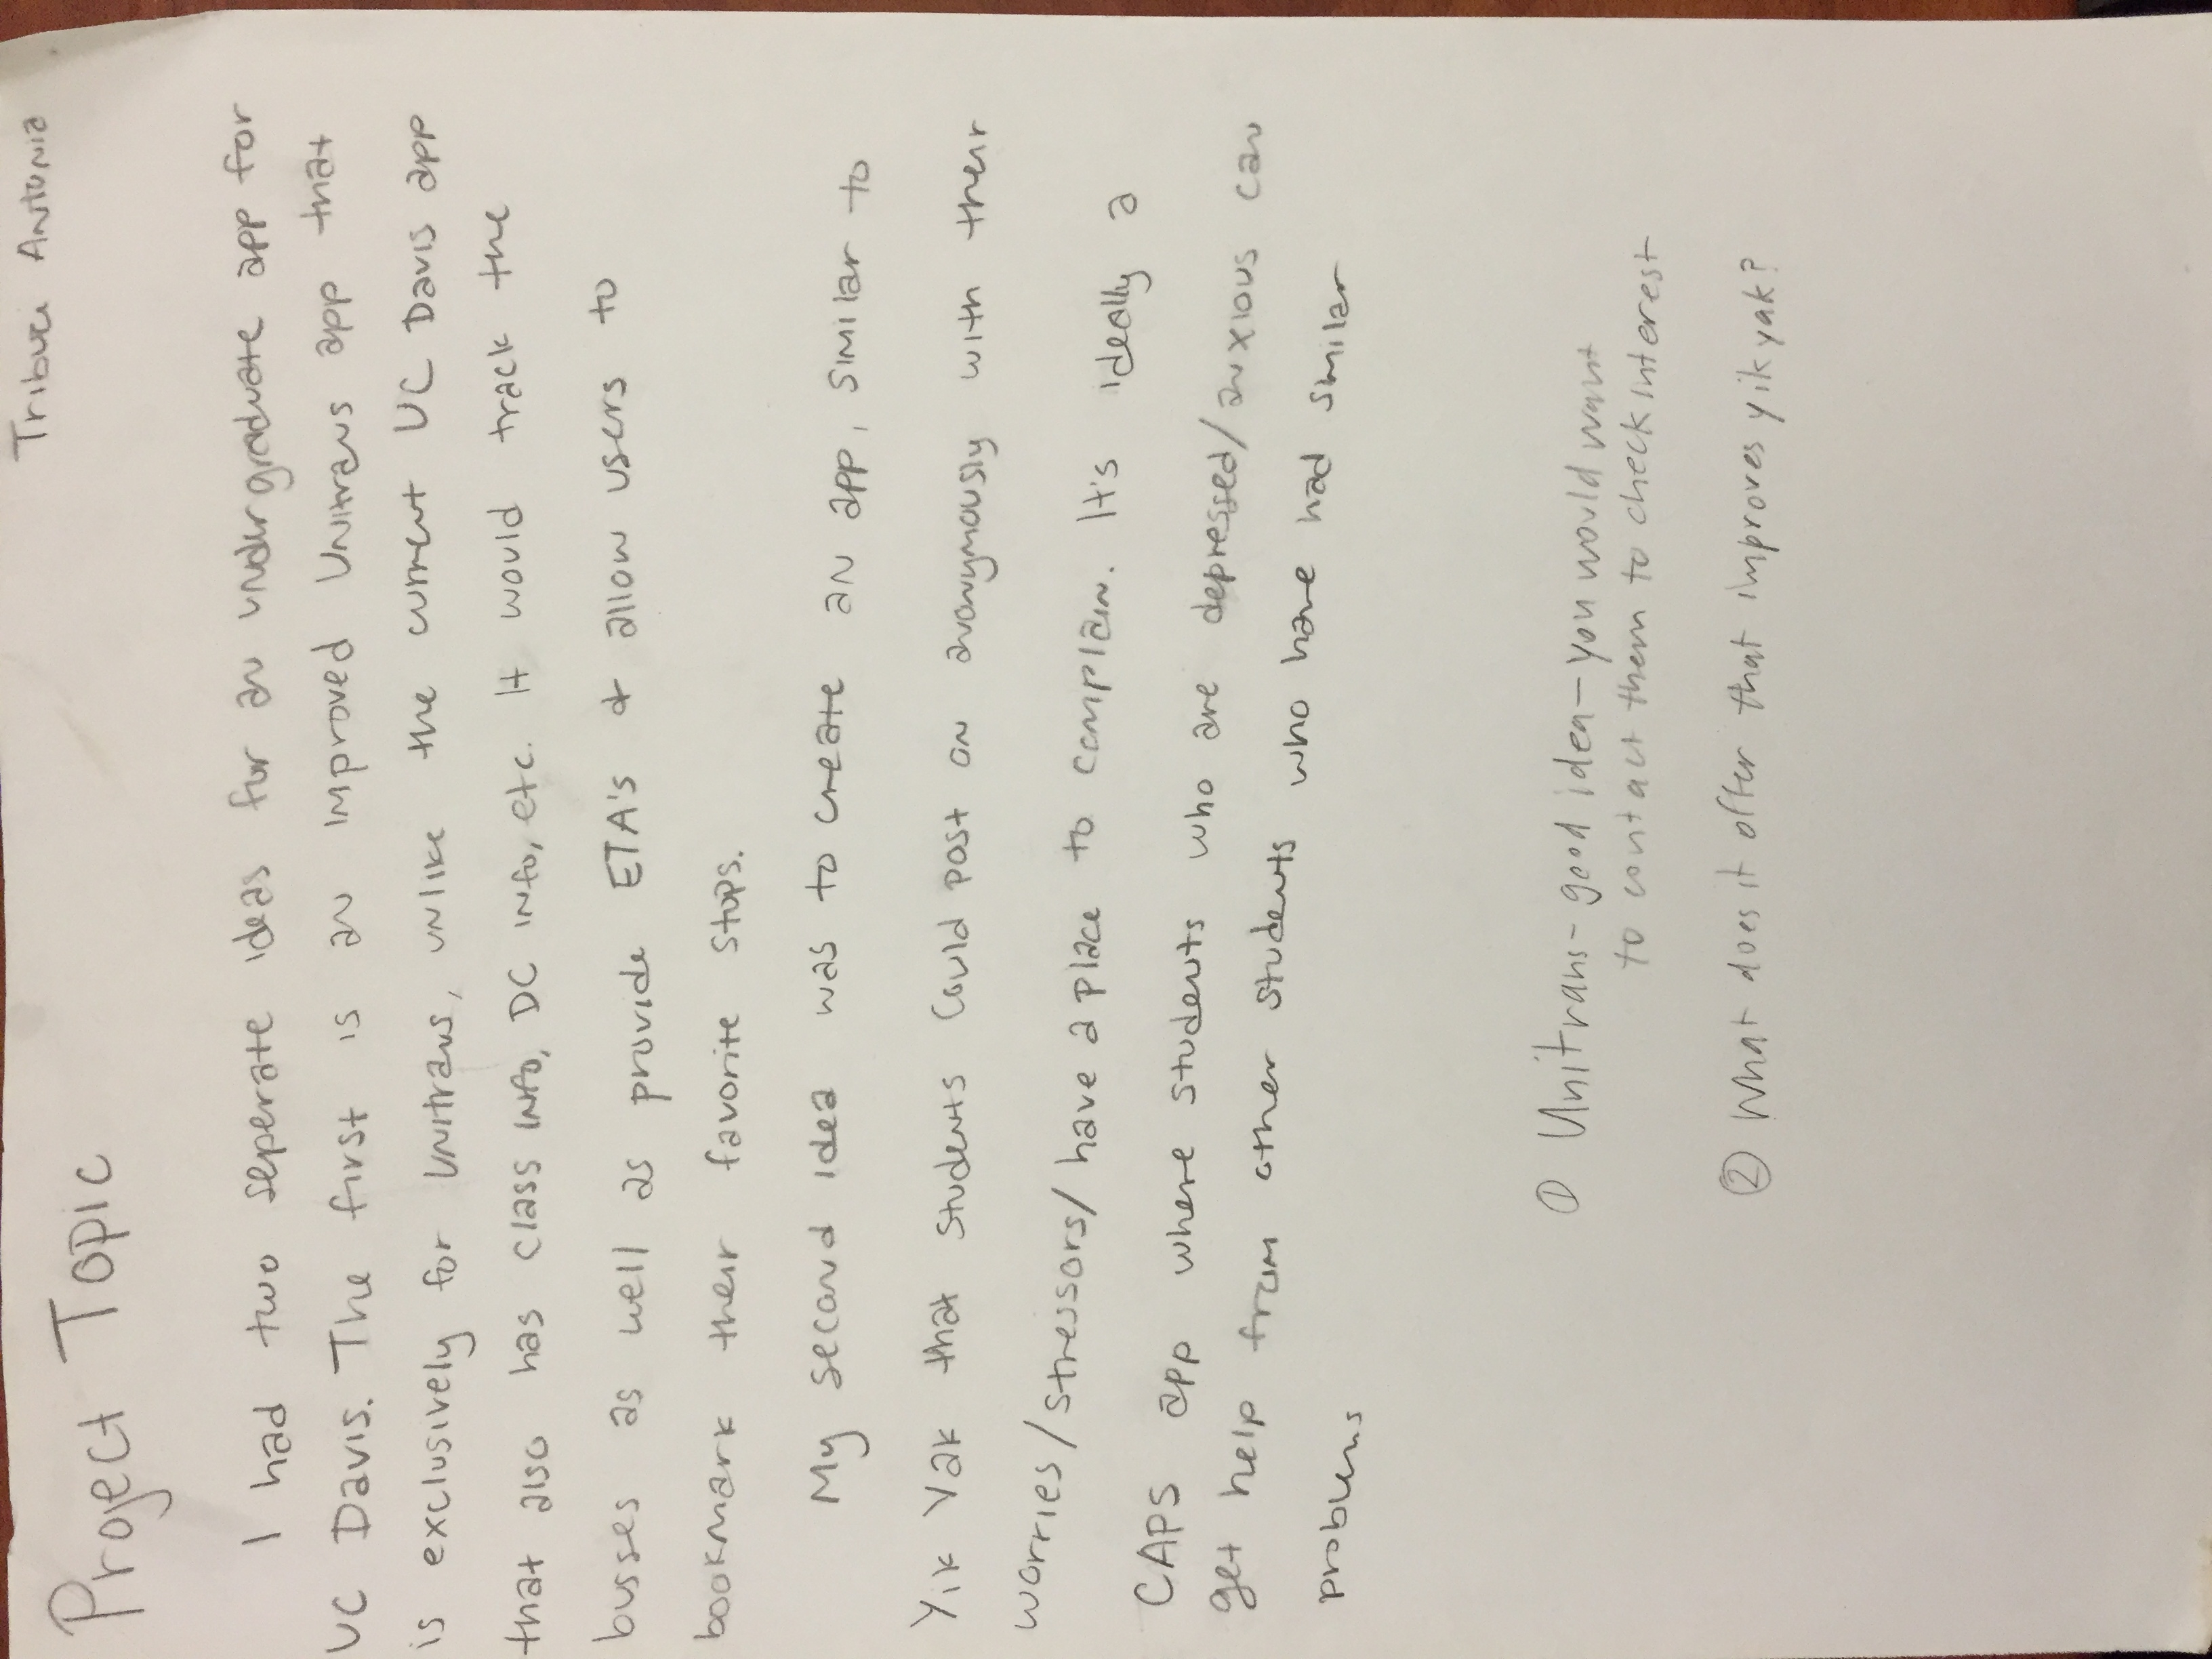 Antonia
Project Topic
I had two seperate ideas for an undergraduate app for
UC Davis. The first is an improved Unitrans app that
is exclusively for Unitrans, unlike the current UC Davis app
that also has class info, DC info, etc. It would track the
busses as well as provide ETA's & allow users to
bookmark their favorite stops.
My second idea was to create an app, similar to
Yik Yak that students could post on anonymously with their
worries/stressors/have a place to complain. It's ideally a
CAPS app where students who are depressed/anxious can
get help from other students who have had similar
problems
① Unitrans - good idea - you would want
to contact them to check interest
② What does it offer that improves yik yak?